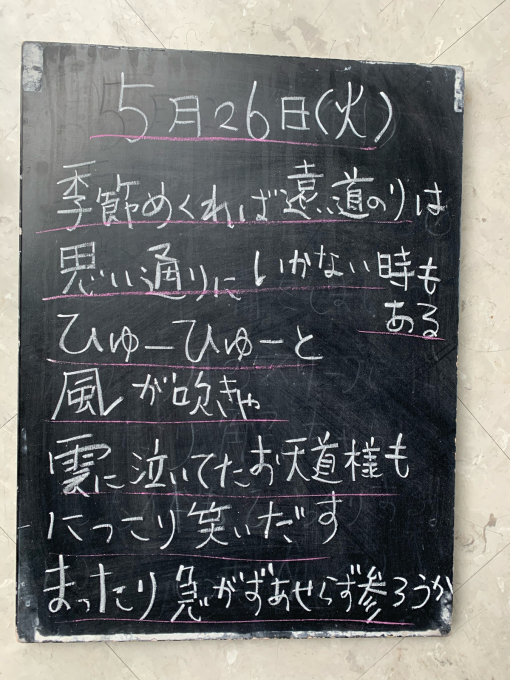 5月26日(火)
季節めくれば遠い道のりは
思い通りにいかない時も
ある
ひゅーひゅーと
風が吹きゃ
雲に泣いてたお天道様も
にっこり笑いだす
まったり急がずあせらず参ろうか